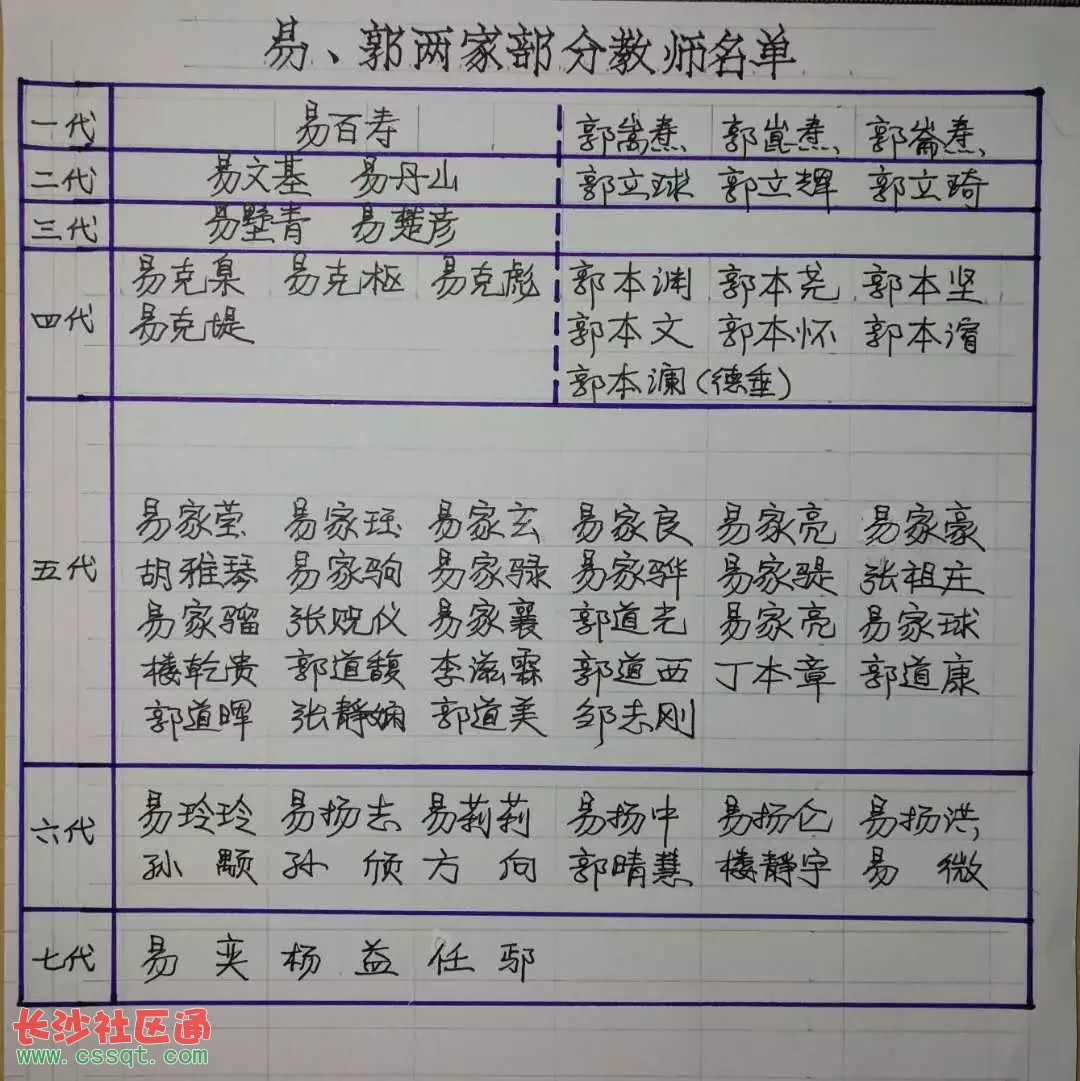 易、郭两家部分教师名单
一代 易百寿 郭嵩焘 郭崑焘、 郭崙焘、
二代 易文基 易丹山 郭立球 郭立辉 郭立琦
三代 易墅青 易楚彦
四代 易克臬 易克枢 易克彪 郭本渊 郭本荛 郭本坚
易克堤 郭本文 郭本怀 郭本濬
郭本澜(德垂)
五代
易家莹 易家珏 易家玄 易家良 易家亮 易家豪
胡雅琴 易家驹 易家騄 易家骅 易家騠 张祖庄
易家骝 张贶仪 易家襄 郭道光 易家亮 易家球
楼乾贵 郭道馥 李滋霖 郭道西 丁本章 郭道康
郭道晖 张静娴 郭道美 邹志刚
六代 易玲玲 易扬去 易莉莉 易扬中 易扬仑 易扬洪,
孙颙 孙颀 方向 郭晴慧 楼静宇 易微
七代 易奕 杨益 任鄢
长沙社区通
www.cssqt.com